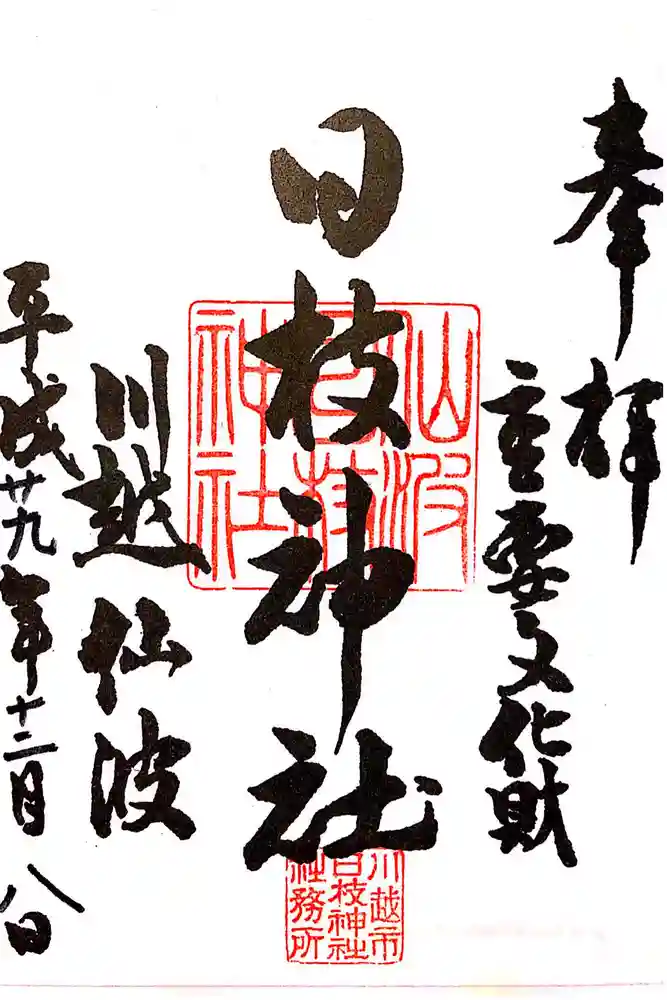 奉拝
重要文化財
日枝神社
仙波
日枝
神社
川越市
日枝神社
社務所
川越仙波
平成廿九年十二月八日